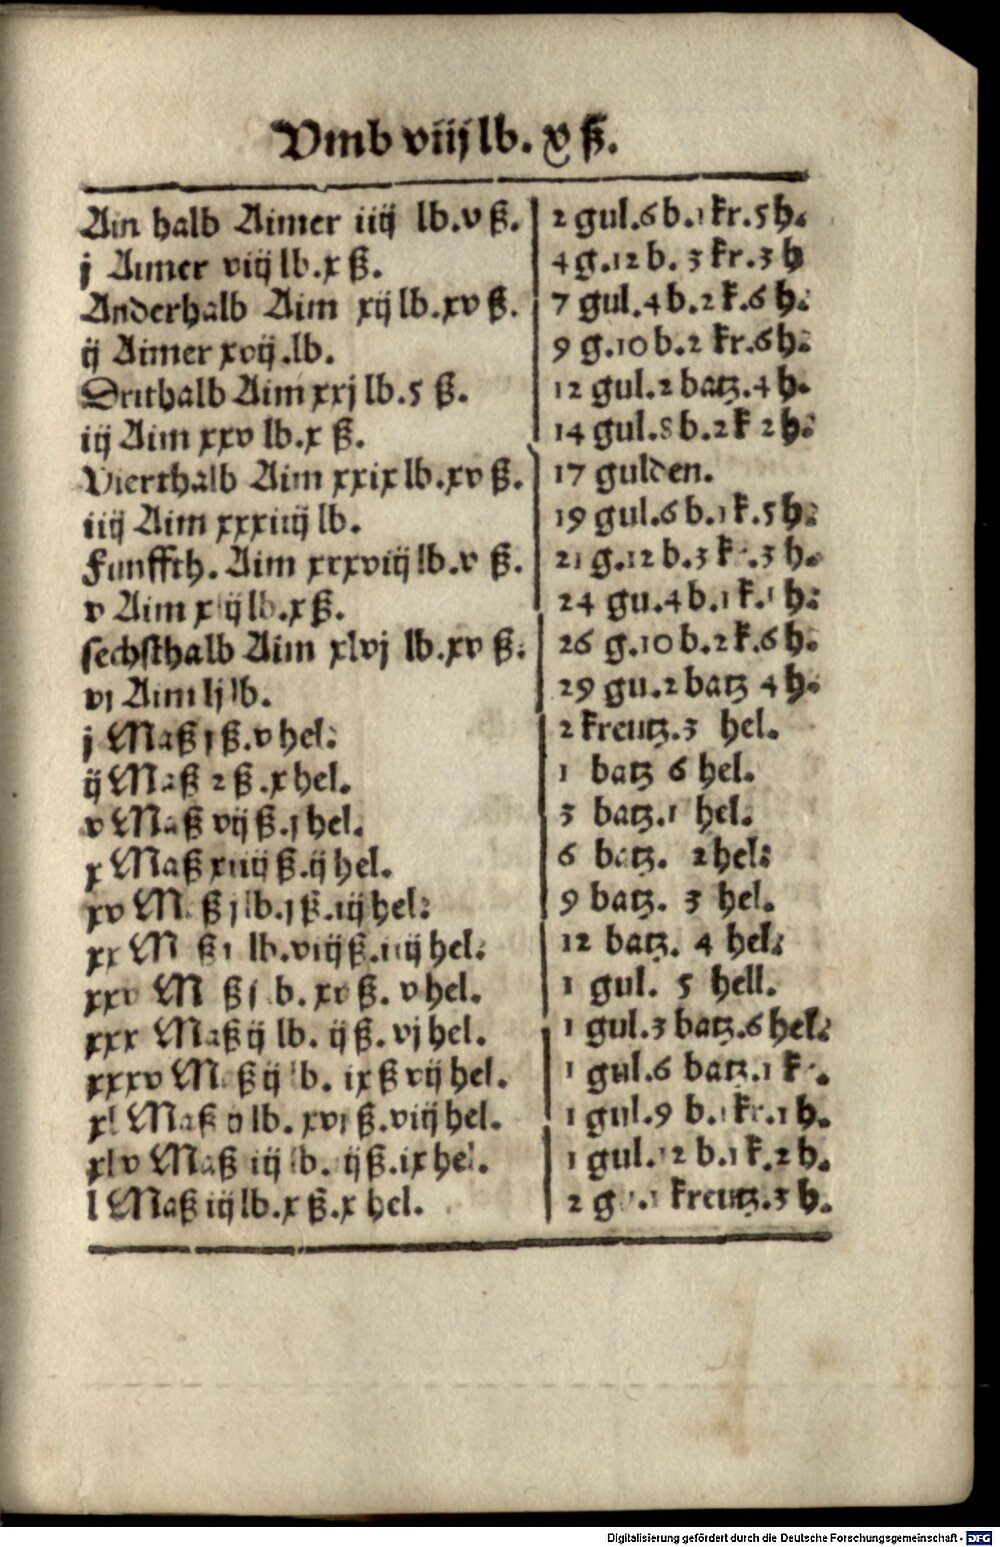 Vmb viij lb. x ß.
Ain halb Aimer iiij lb. v ß. | 2 gul. 6 b. 1 kr. 5 h.
j Aimer viij lb. x ß. | 4 g. 12 b. 3 kr. 3 h
Anderhalb Aim xij lb. xv ß. | 7 gul. 4 b. 2 k. 6 h.
ij Aimer xvij .lb. | 9 g. 10 b. 2 kr. 6 h.
Drithalb Aim xxj lb. 5 ß. | 12 gul. 2 batz. 4 h.
iij Aim xxv lb. x ß. | 14 gul. 8 b. 2 k 2 h.
Vierthalb Aim xxix lb. xv ß. | 17 gulden.
iiij Aim xxxiiij lb. | 19 gul. 6 b. 1 k. 5 h.
Funffth. Aim xxxviij lb. v ß. | 21 g. 12 b. 3 k. 3 h.
v Aim xlij lb. x ß. | 24 gu. 4 b. 1 k. 1 h.
sechsthalb Aim xlvj lb. xv ß. | 26 g. 10 b. 2 k. 6 h.
vj Aim lj lb. | 29 gu. 2 batz 4 h.
j Maß j ß. v hel. | 2 kreutz. 3 hel.
ij Maß 2 ß. x hel. | 1 batz 6 hel.
v Maß vij ß. j hel. | 3 batz. 1 hel.
x Maß xiiij ß. ij hel. | 6 batz. 2 hel.
xv Maß j lb. j ß. iij hel. | 9 batz. 3 hel.
xx Maß 1 lb. viij ß. iiij hel. | 12 batz. 4 hel.
xxv Maß j lb. xv ß. v hel. | 1 gul. 5 hell.
xxx Maß ij lb. ij ß. vj hel. | 1 gul. 3 batz. 6 hel.
xxxv Maß ij lb. ix ß vij hel. | 1 gul. 6 batz. 1 k.
xl Maß ij lb. xvj ß. viij hel. | 1 gul. 9 b. 1 kr. 1 h.
xlv Maß iij lb. iij ß. ix hel. | 1 gul. 12 b. 1 k. 2 h.
l Maß iij lb. x ß. x hel. | 2 g 1 kreutz. 3 h.
Digitalisierung gefördert durch die Deutsche Forschungsgemeinschaft - DFG